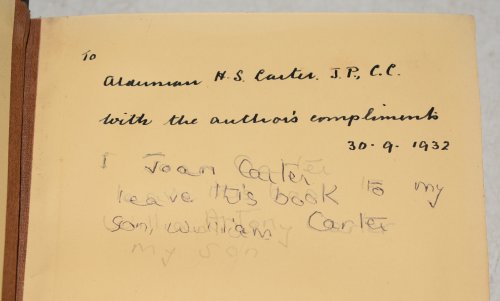 To
Alderman H.S. Carter. J.P., C.C.
with the author's compliments
30-9-1932
I Joan Carter
leave this book to my
son, william Carter
my son